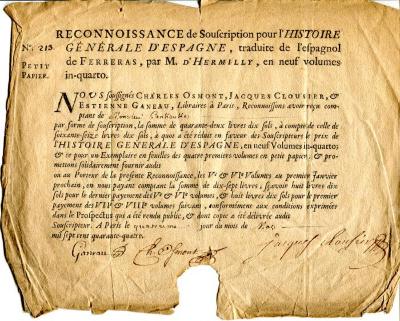 RECONNOISSANCE de Souscription pour l'HISTOIRE
No. 213. GÉNÉRALE D'ESPAGNE, traduite de l'espagnol
PETIT PAPIER. de FERRERAS, par M. D'HERMILLY, en neuf volumes
in-quarto.
NOUS soussignés CHARLES OSMONT, JACQUES CLOUSIER, &
ESTIENNE GANEAU, Libraires à Paris, Reconnoissons avoir reçu comp-
tant de Monsieur
par forme de souscription, la somme de quarante-deux livres dix sols, à compte de celle de
soixante-seize livres dix sols, à quoi a été réduit en faveur des Souscripteurs le prix de
l'HISTOIRE GENERALE D'ESPAGNE, en neuf Volumes in-quarto;
& ce pour un Exemplaire en feuilles des quatre premiers volumes en petit papier, & pro-
mettons solidairement fournir audit
ou au Porteur de la presente Reconnoissance, les Ve & VIe Volumes au premier janvier
prochain, en nous payant comptant la somme de dix-sept livres, sçavoir huit livres dix
sols pour le dernier payement des Ve & VIe volumes, & huit livres dix sols pour le premier
payement des VIIe & VIIIe volumes suivans, conformément aux conditions exprimées
dans le Prospectus qui a été rendu public, & dont copie a été délivrée audit
Souscripteur. A Paris ce jour du mois de
mil sept cens quarante-quatre.
Ganeau Ch. Osmont Jacques Clousier